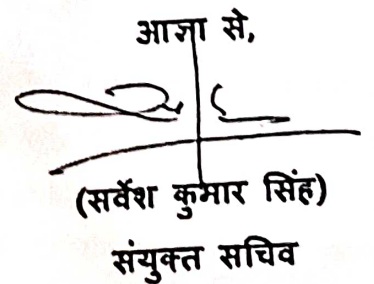 आज्ञा से,
(सर्वेश कुमार सिंह)
संयुक्त सचिव